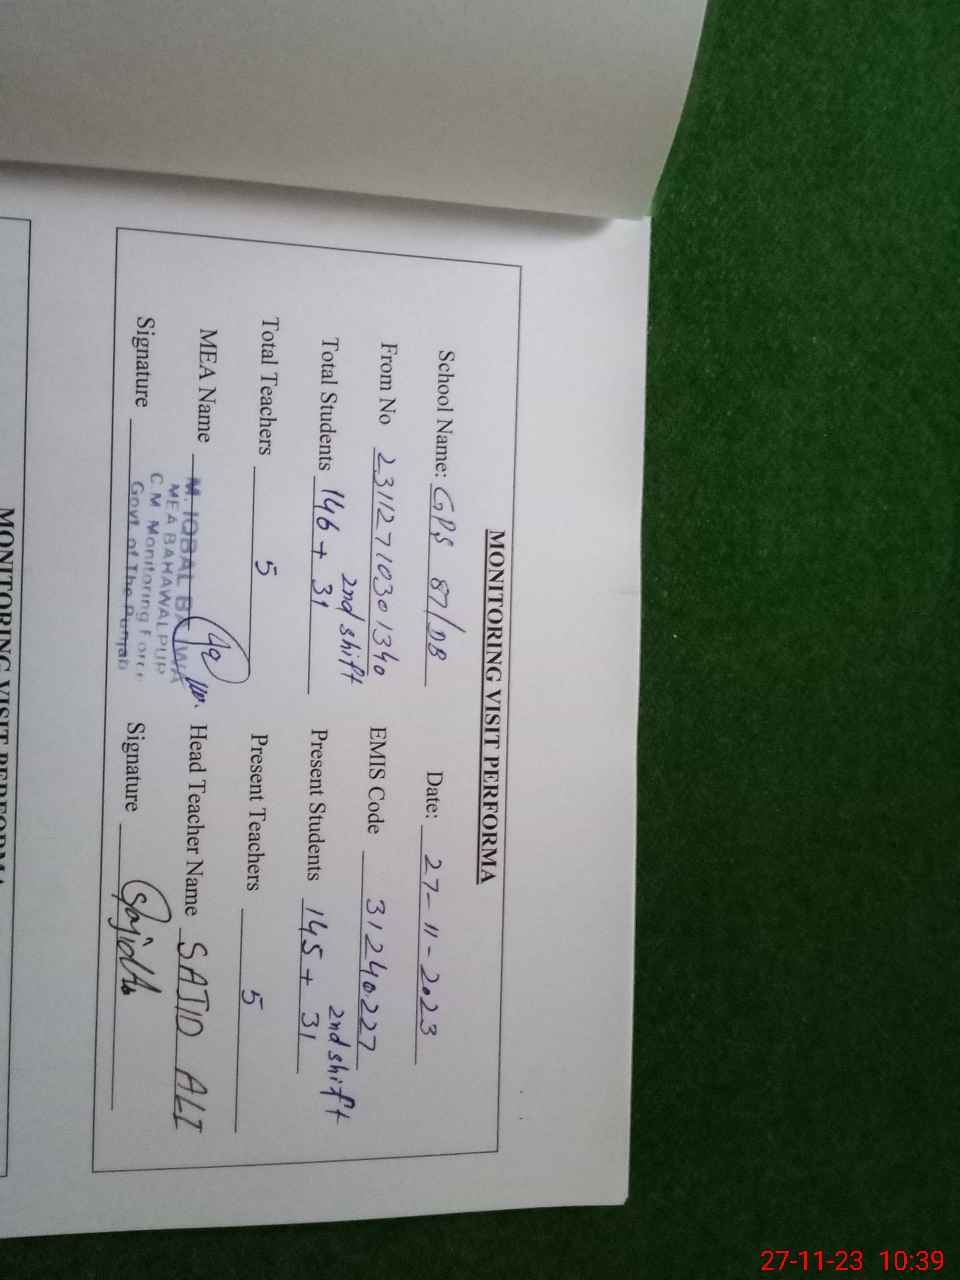 MONITORING VISIT PERFORMA
School Name: GPS 87/DB Date: 27-11-2023
From No 23112710301340 EMIS Code 31240227
2nd shift 2nd shift
Total Students 146 + 31 Present Students 145 + 31
Total Teachers 5 Present Teachers 5
MEA Name M. IQBAL BAJWA Head Teacher Name SAJID ALI
MEA BAHAWALPUR
C.M. Monitoring Force
Govt of The Punjab
Signature Signature Sajid Ali
MONITORING VISIT PERFORMA
27-11-23 10:39